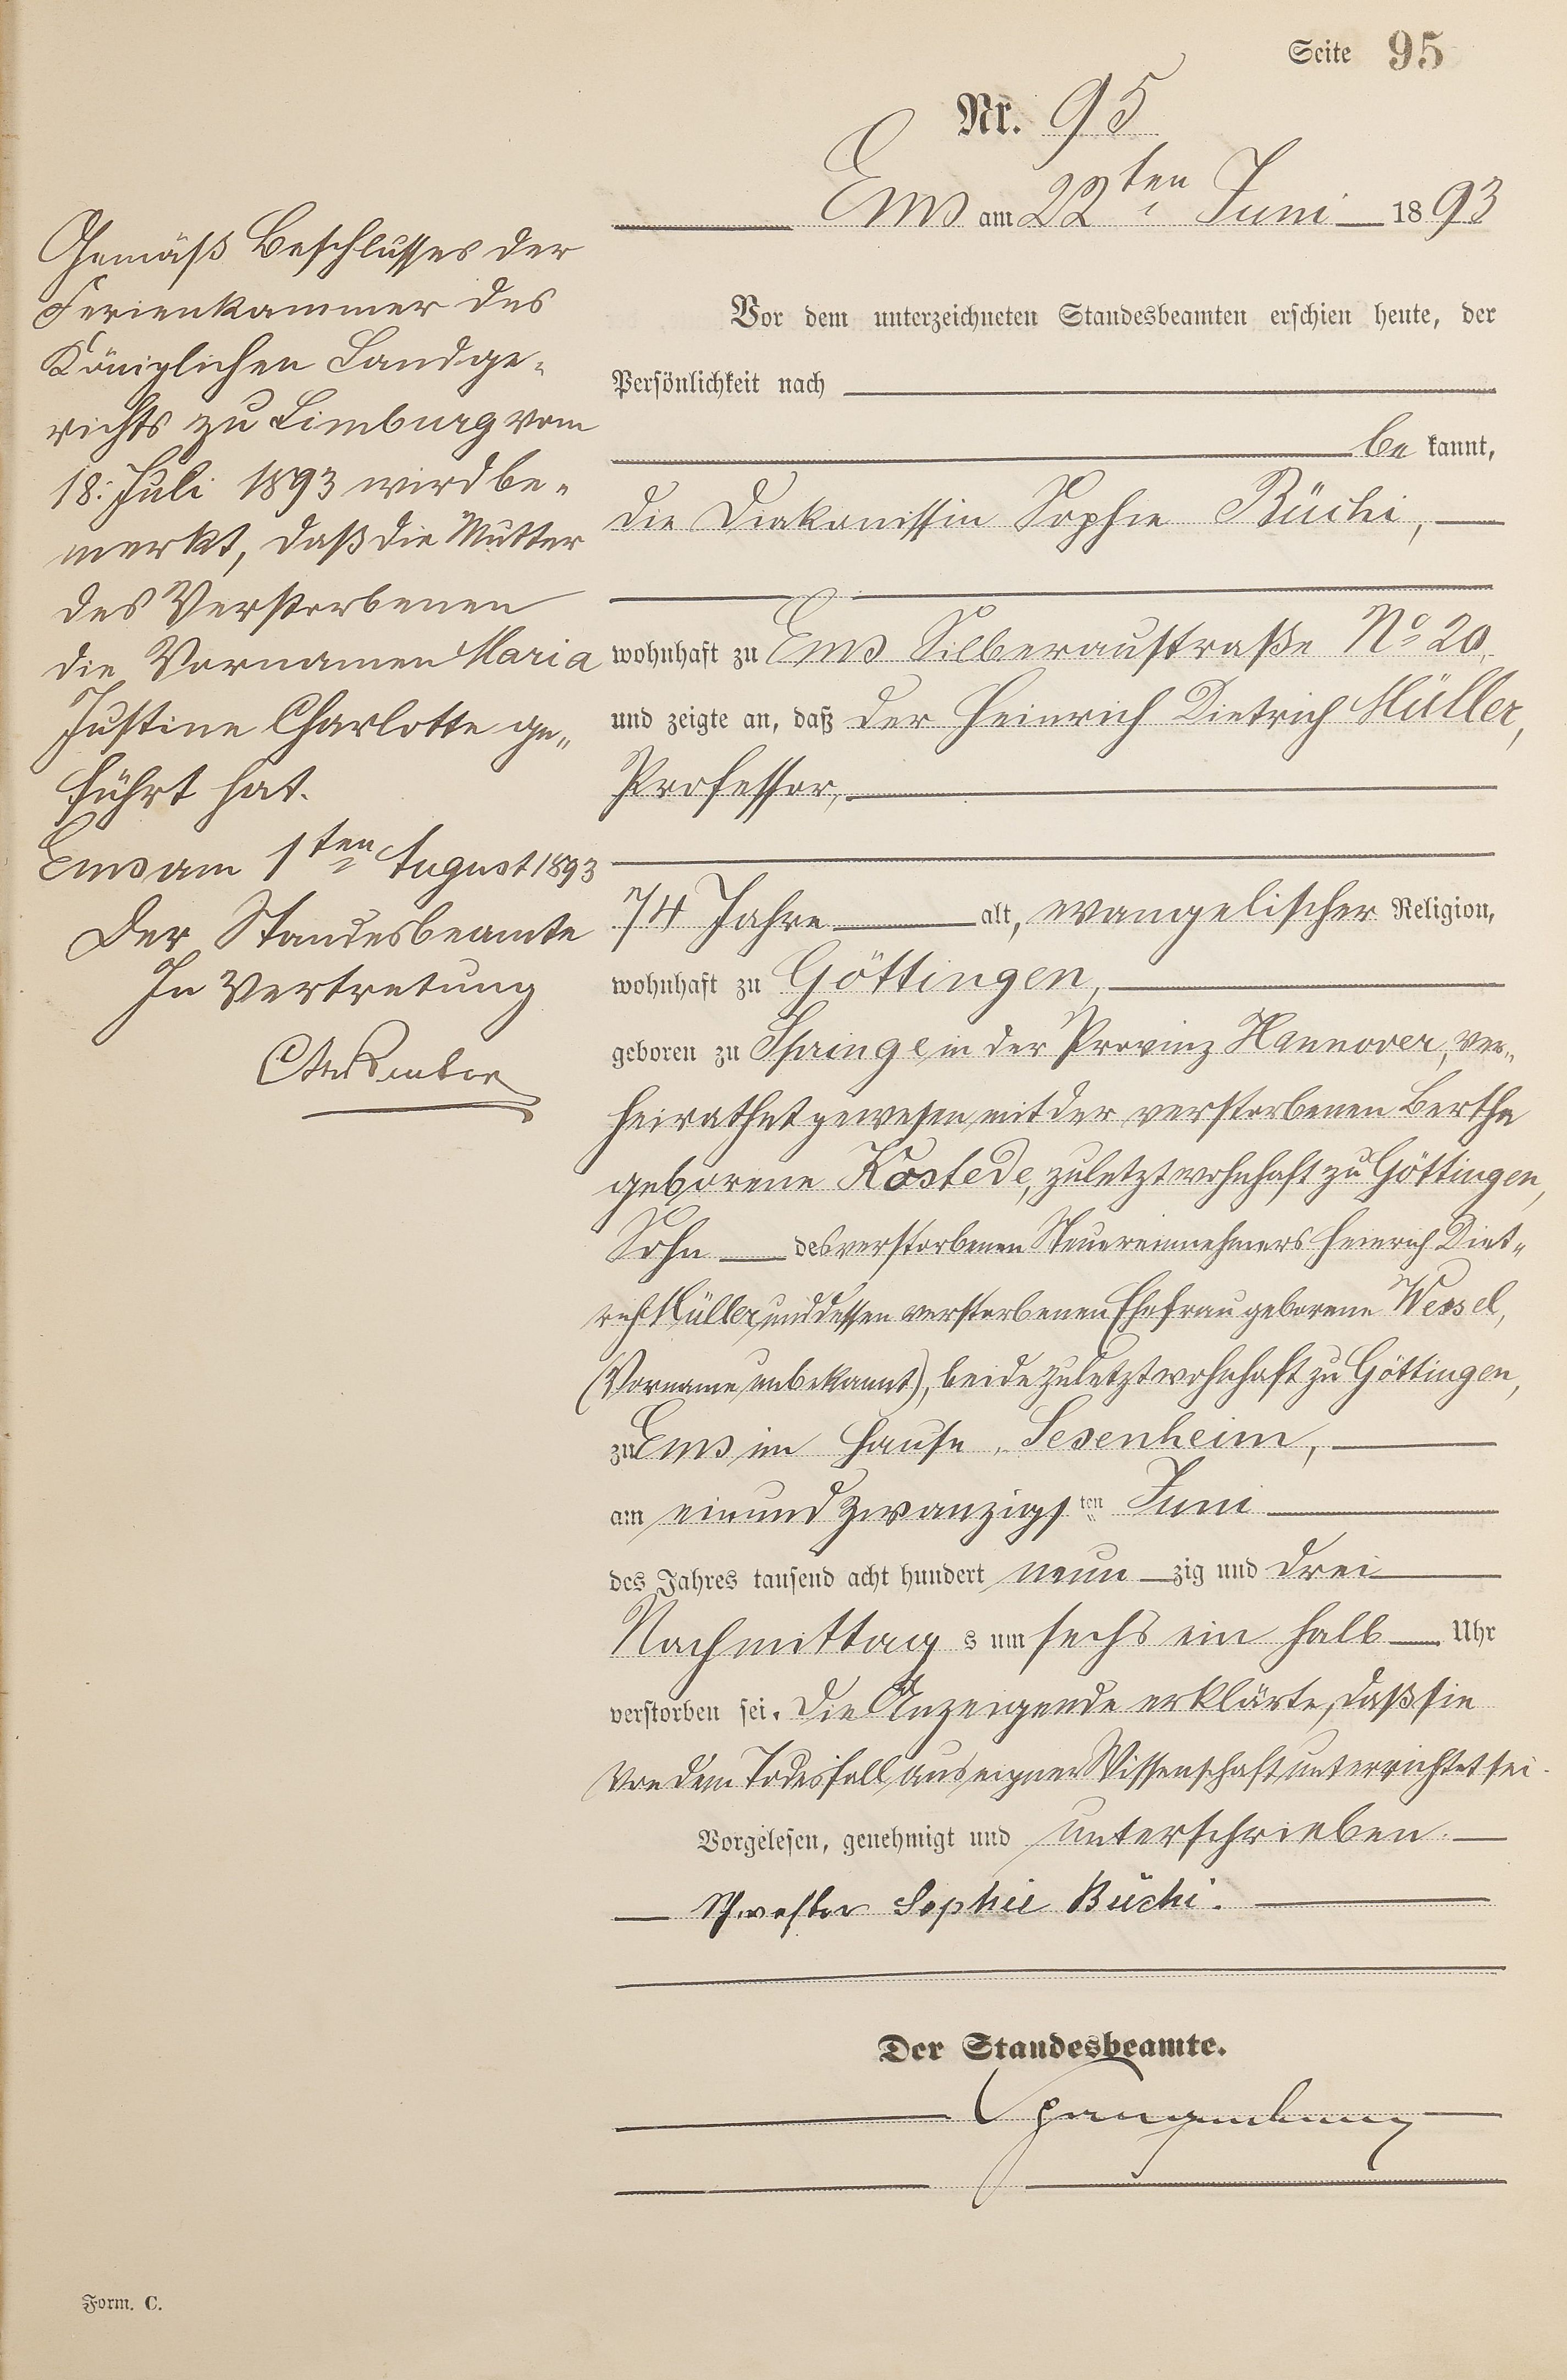 Seite 95
Nr. 95
Ems am 22ten Juni 1893
Vor dem unterzeichneten Standesbeamten erschien heute, der
Persönlichkeit nach
be kannt,
die Diakonissin Sophie Büchi,
wohnhaft zu Ems Silberaustraße No 20,
und zeigte an, daß der Heinrich Dietrich Müller,
Professor,
74 Jahre alt, evangelischer Religion,
wohnhaft zu Göttingen,
geboren zu Springe in der Provinz Hannover, ver-
heirathet gewesen mit der verstorbenen Bertha
geborene Kostede, zuletzt wohnhaft zu Göttingen,
Sohn des verstorbenen Steuereinnehmers Heinrich Diet-
rich Müller und dessen verstorbenen Ehefrau geborene Wessel,
(Vorname unbekannt), beide zuletzt wohnhaft zu Göttingen,
zu Ems im Hause Sesenheim,
am einundzwanzigsten Juni
des Jahres tausend acht hundert neunzig und drei
Nachmittags um sechs ein halb Uhr
verstorben sei. Die Anzeigende erklärte, daß sie
von dem Todesfall aus eigner Wissenschaft unterrichtet sei.
Vorgelesen, genehmigt und unterschrieben.
Schwester Sophie Büchi.
Der Standesbeamte.
Gemäß Beschlusses der
Ferienkammer des
Königlichen Landge-
richts zu Limburg vom
18. Juli 1893 wird be-
merkt, daß die Mutter
des Verstorbenen
die Vornamen Maria
Justine Charlotte ge-
führt hat.
Ems am 1ten August 1893
Der Standesbeamte
In Vertretung
Form. C.